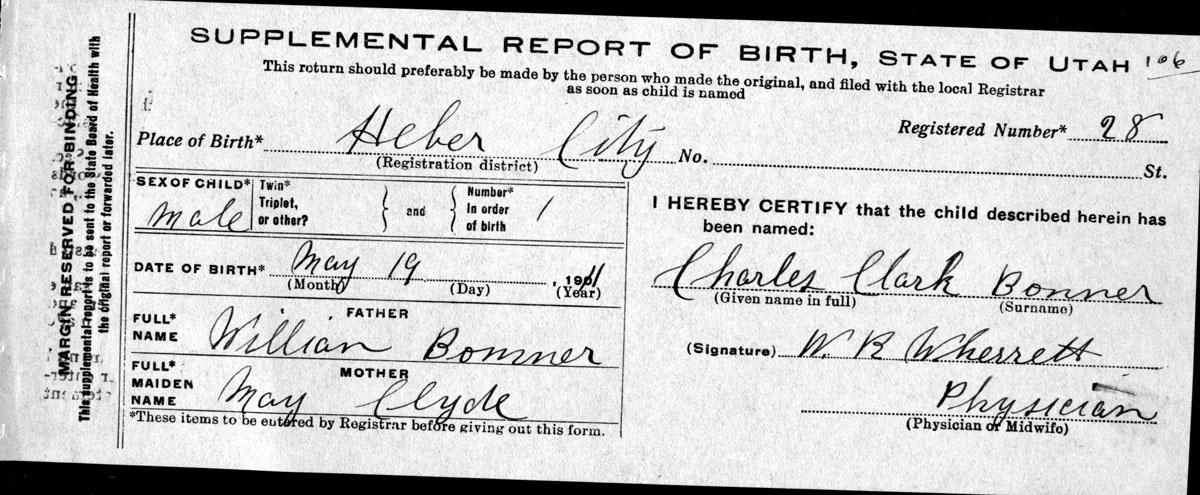 SUPPLEMENTAL REPORT OF BIRTH, STATE OF UTAH 106
This return should preferably be made by the person who made the original, and filed with the local Registrar
as soon as child is named
MARGIN RESERVED FOR BINDING
This supplemental report is to be sent to the State Board of Health with
the original report or forwarded later.
Registered Number* 28
Place of Birth* Heber City No. St.
(Registration district)
SEX OF CHILD* Male
Twin*
Triplet,
or other?
and
Number*
In order
of birth
1
DATE OF BIRTH* May 19, 1911
(Month) (Day) (Year)
FATHER
FULL*
NAME
Willian Bomner
MOTHER
FULL*
MAIDEN
NAME
May Clyde
*These items to be entered by Registrar before giving out this form.
I HEREBY CERTIFY that the child described herein has
been named:
Charles Clark Bonner
(Given name in full) (Surname)
(Signature) W. R Wherrett
Physician
(Physician or Midwife)